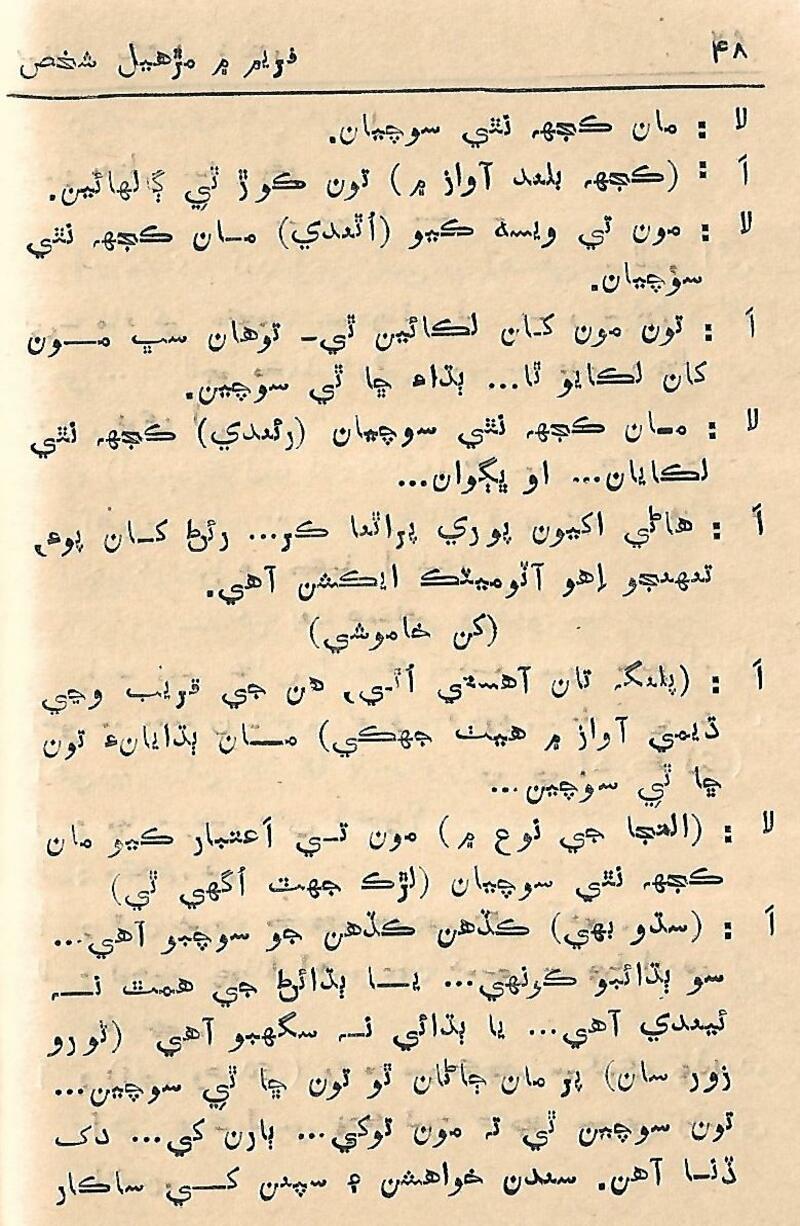 ۴۸
فريم ۾ مڙهيل شخص
لا : مان ڪجهہ نٿي سوچيان.
اَ : (ڪجهہ بلند آواز ۾) تون ڪوڙ ٿي ڳالهائين.
لا : مون تي ويسهہ ڪيو (اُٿندي) مان ڪجهہ نٿي
سوچيان.
اَ : تون مون کان لڪائين ٿي- توهان سڀ مون
کان لڪايو ٿا... ٻڌاءِ ڇا ٿي سوچين.
لا : مان ڪجهہ نٿي سوچيان (رئندي) ڪجهہ نٿي
لڪايان... او ڀڳوان...
اَ : هاڻي اکيون پوري پرائنا ڪر... رئڻ کان پوءِ,
تنهنجو اِهو آٽوميٽڪ ايڪشن آهي.
(کن خاموشي)
اَ : (پلنگہ تان آهستي اُٿي, هن جي قريب وڃي
ڌيمي آواز ۾ هيٺ جهڪي) مان ٻڌايانءِ تون
ڇا ٿي سوچين...
لا : (التجا جي نوع ۾) مون تي اَعتبار ڪيو مان
ڪجهہ نٿي سوچيان (لڙڪ جهٽ اُگهي ٿي)
اَ : (سڌو بهي) ڪڏهن ڪڏهن جو سوچبو آهي...
سو ٻڌائبو ڪونهي... يا ٻڌائڻ جي همٿ نہ
ٿيندي آهي... يا ٻڌائي نہ سگهبو آهي (ٿورو
زور سان) پر مان ڄاڻان ٿو تون ڇا ٿي سوچين...
تون سوچين ٿي تہ مون توکي... ٻارن کي... دک
ڏنا آهن. سندن خواهشن ۽ سپنن کي ساڪار